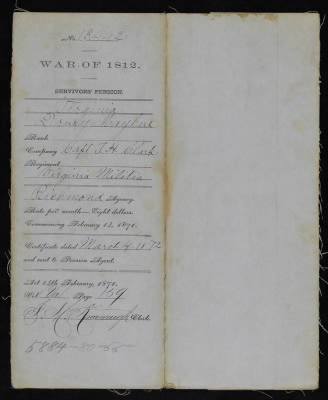 No.
WAR OF 1812.
SURVIVORS' PENSION.
Virginia
Rank
Company Capt T. H. Clark
Regiment
Virginia Militia
Richmond Agency
Rate per month—Eight dollars.
Commencing February 14, 1871.
Certificate dated March 4 1872
and sent to Pension Agent.
Act 14th February, 1871.
Vol. Page 159
Clerk.
5884